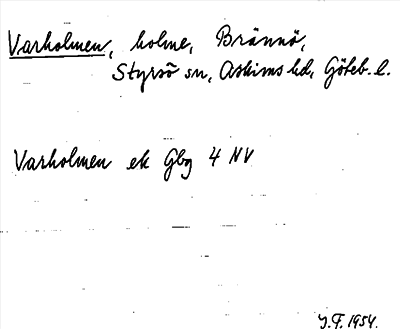 Varholmen, holme, Brännö,
Styrsö sn, Askims hd, Göteb. l.
Varholmen ek Gbg 4 NV
J.F. 1954.